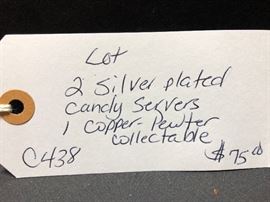 Lot
2 Silver plated
Candy Servers
1 Copper-Pewter
collectable
C438
$75.00